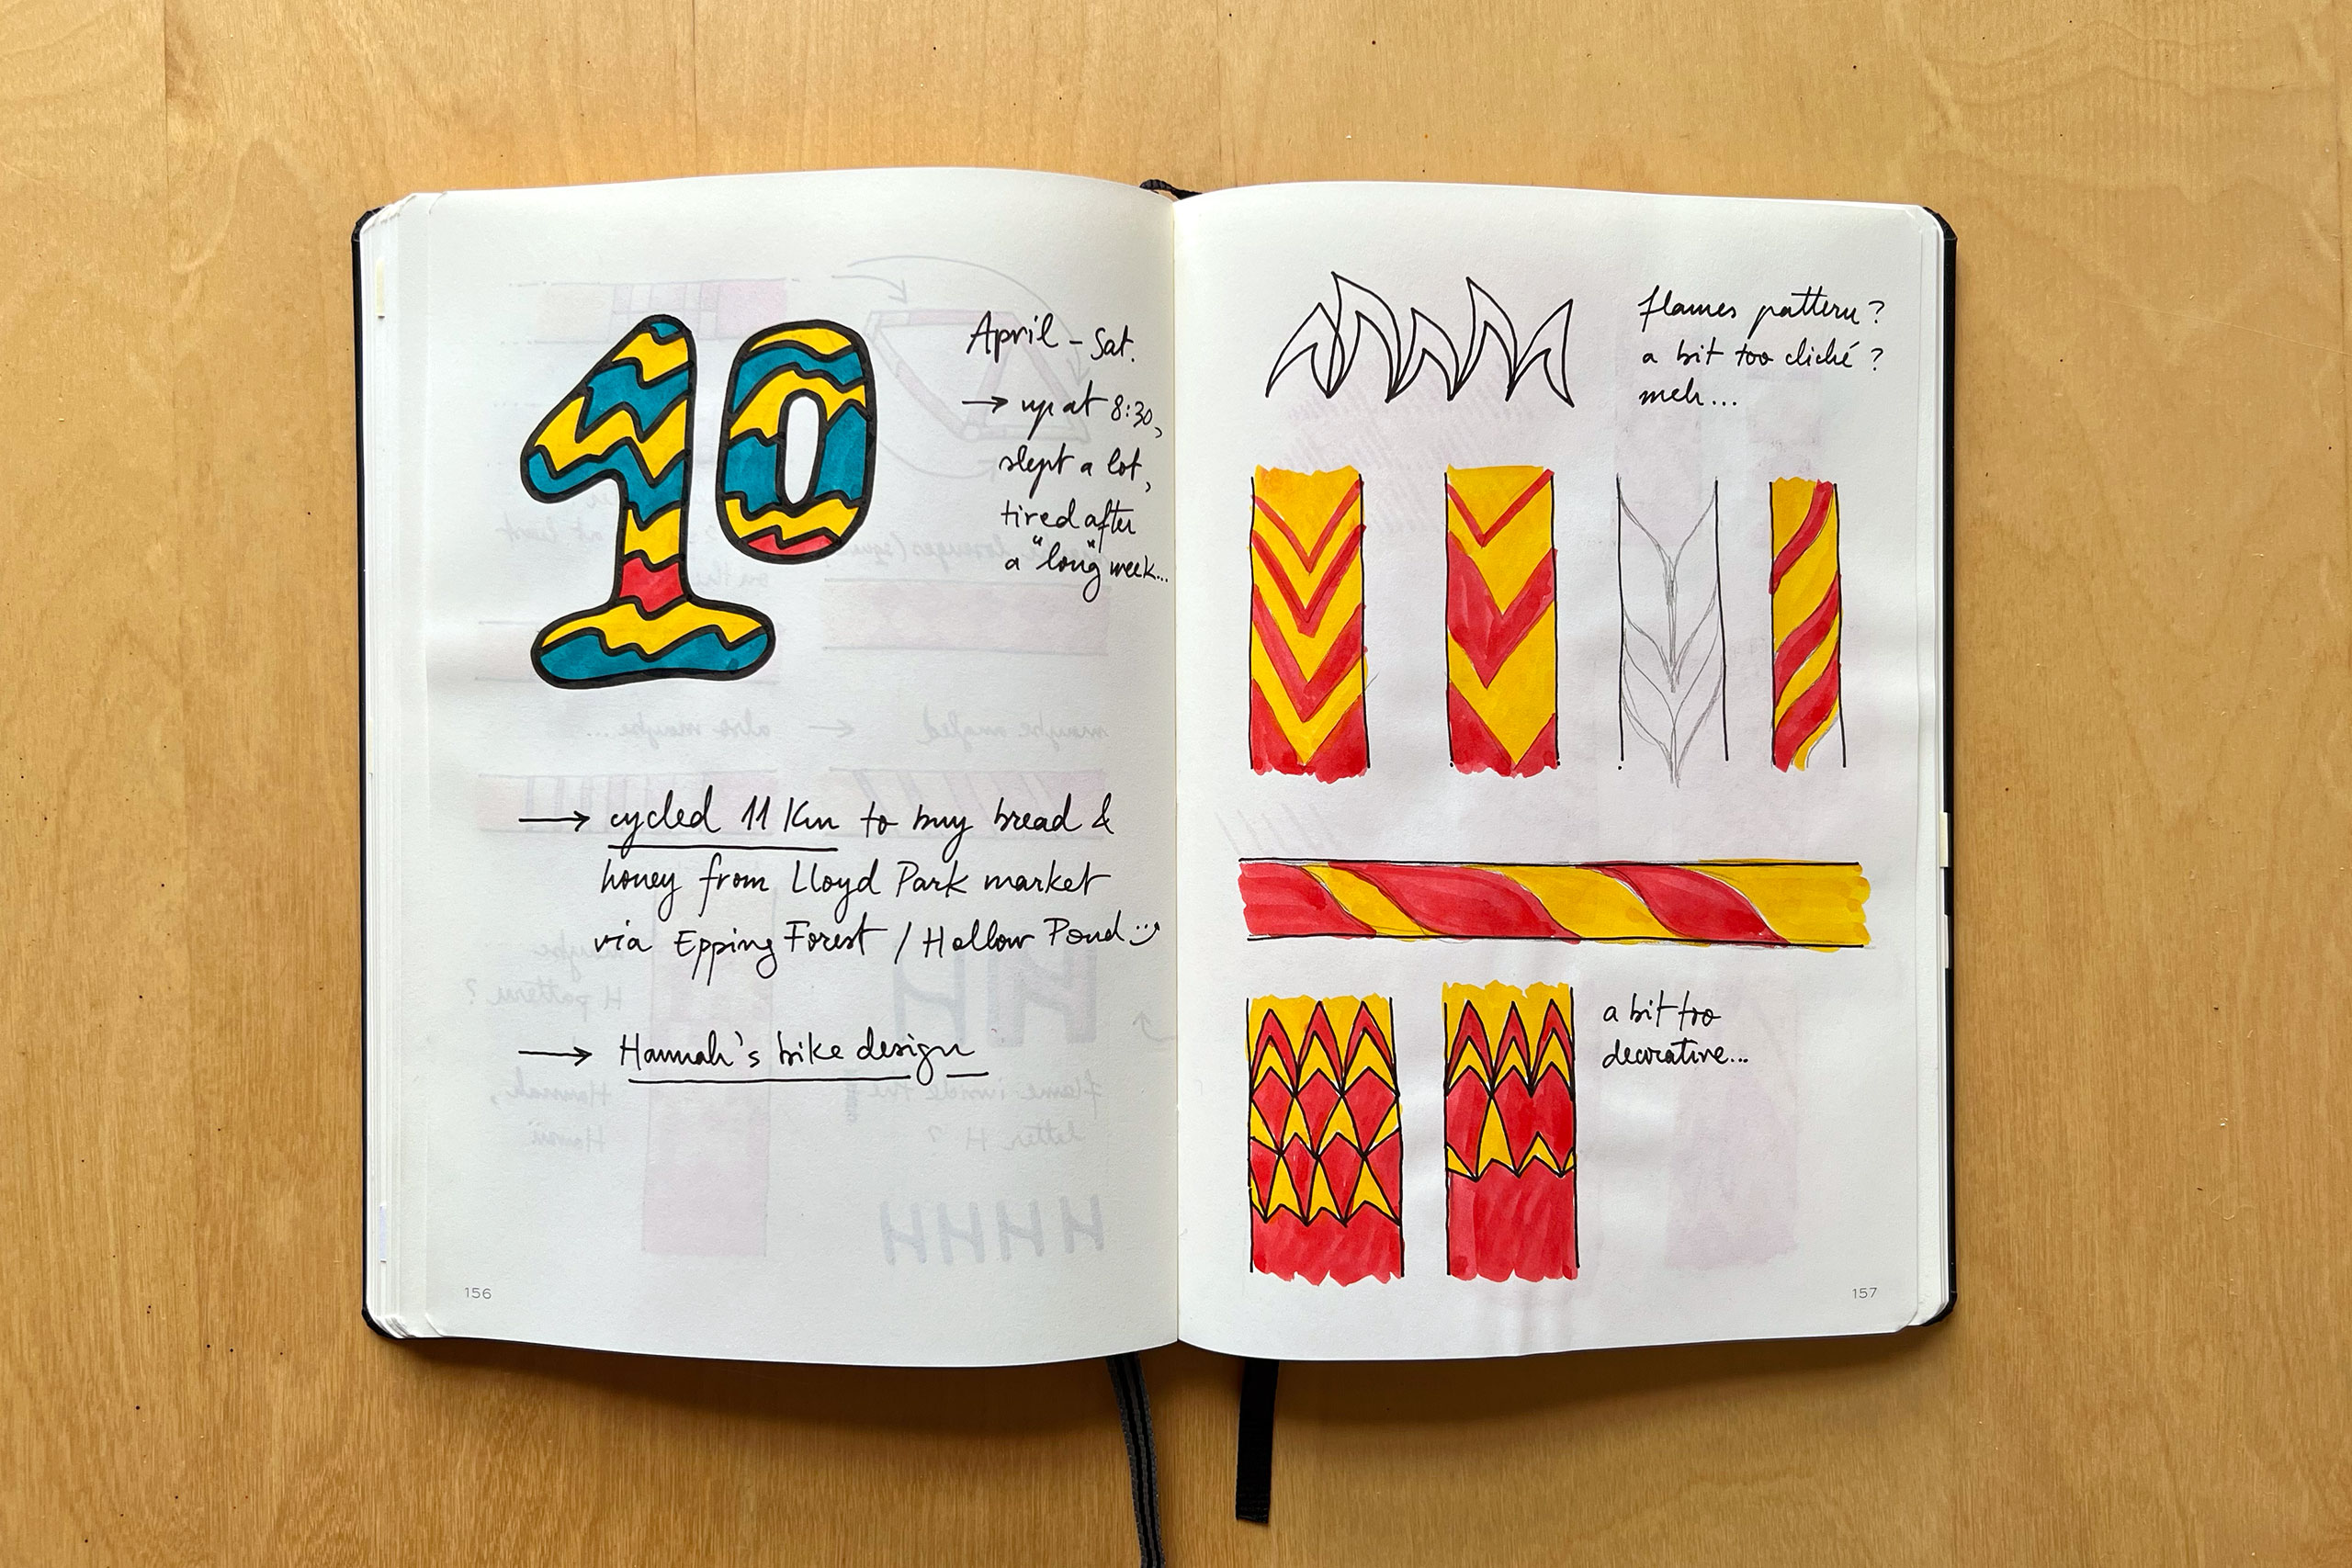 10
April - Sat.
→ up at 8:30,
slept a lot,
tired after
a "long" week...
→ cycled 11 Km to buy bread &
honey from Lloyd Park market
via Epping Forest / Hollow Pond :)
→ Hannah's bike design
156
flames pattern?
a bit too cliché?
meh...
a bit too
decorative...
157